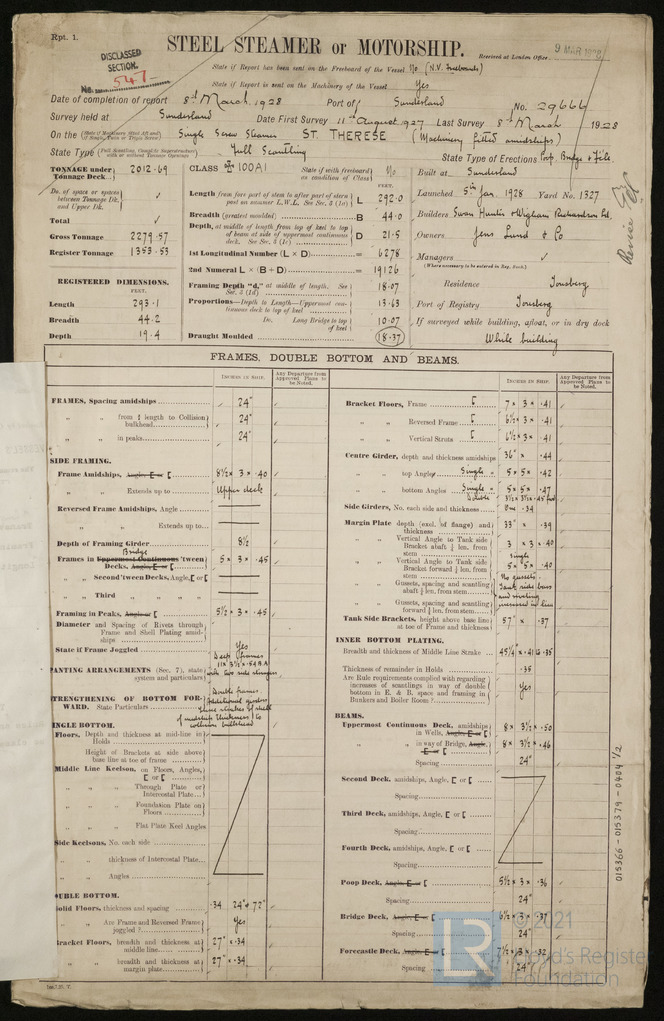 Rpt. 1.
DISCLASSED
SECTION.
No. 547
STEEL STEAMER or MOTORSHIP.
9 MAR 1928
Received at London Office
State if Report has been sent on the Freeboard of the Vessel No (N.V. Freeboards)
State if Report is sent on the Machinery of the Vessel Yes
Date of completion of report 8th March 1928 Port of Sunderland No. 29666
Survey held at Sunderland Date First Survey 11th August 1927 Last Survey 8th March 1928
On the (State if Machinery fitted Aft and if Single, Twin or Triple Screw) Single Screw Steamer ST. THERESE (Machinery fitted amidships)
State Type (Full Scantling, Complete Superstructure with or without Tonnage Openings) Full Scantling State Type of Erections Poop, Bridge & F'cle.
TONNAGE under Tonnage Deck 2012.69
Do. of space or spaces between Tonnage Dk. and Upper Dk.
Total
Gross Tonnage 2279.57
Register Tonnage 1353.53
REGISTERED DIMENSIONS.
FEET.
Length 293.1
Breadth 44.2
Depth 19.4
CLASS 100A1 State if with freeboard as condition of Class No
FEET.
Length from fore part of stem to after part of stern post on summer L.W.L. See Sec. 3 (1a) L 292.0
Breadth (greatest moulded) B 44.0
Depth, at middle of length from top of keel to top of beam at side of uppermost continuous deck. See Sec. 3 (1c) D 21.5
1st Longitudinal Number (L × D) = 6278
2nd Numeral L × (B + D) = 19126
Framing Depth "d," at middle of length. See Sec. 3 (1d) 18.07
Proportions—Depth to Length—Uppermost continuous deck to top of keel 13.63
Do. Long Bridge to top of keel 10.07
Draught Moulded 18.37
Built at Sunderland
Launched 5th Jan. 1928 Yard No. 1327
Builders Swan Hunter & Wigham Richardson Ld.
Owners Jens Lund & Co
Managers
(Where necessary to be entered in Reg. Book.)
Residence Tonsberg
Port of Registry Tonsberg
If surveyed while building, afloat, or in dry dock
While building
FRAMES, DOUBLE BOTTOM AND BEAMS.
INCHES IN SHIP.
Any Departure from Approved Plans to be Noted.
FRAMES, Spacing amidships 24"
" " from ⅕ length to Collision bulkhead 24"
" " in peaks 24"
SIDE FRAMING.
Frame Amidships, Angle, E or [ 8½ × 3 × .40
" " Extends up to Upper deck
Reversed Frame Amidships, Angle
" " Extends up to
Depth of Framing Girder 8½
Frames in Uppermost Continuous 'tween Decks, Angle, E or [ 5 × 3 × .45
Bridge
" " Second 'tween Decks, Angle, E or [
" " Third " " " "
Framing in Peaks, Angle or [ 5½ × 3 × .45
Diameter and Spacing of Rivets through Frame and Shell Plating amidships
State if Frame Joggled Yes
PANTING ARRANGEMENTS (Sec. 7), state system and particulars
STRENGTHENING OF BOTTOM FORWARD. State Particulars
SINGLE BOTTOM.
Floors, Depth and thickness at mid-line in Holds
Height of Brackets at side above base line at toe of frame
Middle Line Keelson, on Floors, Angles, E or [
" " Through Plate or Intercostal Plate
" " Foundation Plate on Floors
" " Flat Plate Keel Angles
Side Keelsons, No. each side
" " thickness of Intercostal Plate
" " Angles
DOUBLE BOTTOM.
Solid Floors, thickness and spacing .34 24" & 72"
" " Are Frame and Reversed Frame joggled? Yes
Bracket Floors, breadth and thickness at middle line 27" × .34
" " breadth and thickness at margin plate 27" × .34
INCHES IN SHIP.
Any Departure from Approved Plans to be Noted.
Bracket Floors, Frame [ 7 × 3 × .41
" " Reversed Frame [ 6½ × 3 × .41
" " Vertical Struts [ 6½ × 3 × .41
Centre Girder, depth and thickness amidships 36" × .44
" " top Angles Single 5 × 5 × .42
" " bottom Angles Single 5 × 5 × .47
Side Girders, No. each side and thickness One .34
Margin Plate depth (excl. of flange) and thickness 33" × .39
" " Vertical Angle to Tank side Bracket abaft ¼ len. from stem 3 × 3 × .40
" " Vertical Angle to Tank side Bracket forward ¼ len. from stem Single 5 × 5 × .40
" " Gussets, spacing and scantling abaft ¼ len. from stem
" " Gussets, spacing and scantling forward ¼ len. from stem
Tank Side Brackets, height above base line at toe of Frame and thickness 57" × .37
INNER BOTTOM PLATING.
Breadth and thickness of Middle Line Strake 45¼" × .41 & .35
Thickness of remainder in Holds .35
Are Rule requirements complied with regarding increases of scantlings in way of double bottom in E. & B. space and framing in Bunkers and Boiler Room? Yes
BEAMS.
Uppermost Continuous Deck, amidships in Wells, Angle, E or [ 8 × 3½ × .50
" " in way of Bridge, Angle, E or [ 8 × 3½ × .46
Spacing 24"
Second Deck, amidships, Angle, E or [
Spacing
Third Deck, amidships, Angle, E or [
Spacing
Fourth Deck, amidships, Angle, E or [
Spacing
Poop Deck, Angle, E or [ 5½ × 3 × .36
Spacing 24"
Bridge Deck, Angle, E or [ 6½ × 3 × .37
Spacing 24"
Forecastle Deck, Angle, E or [ 7½ × 3 × .32
Spacing 24"
015366-015379-0404 1/2
© 2021
Lloyd's Register
Foundation
LR